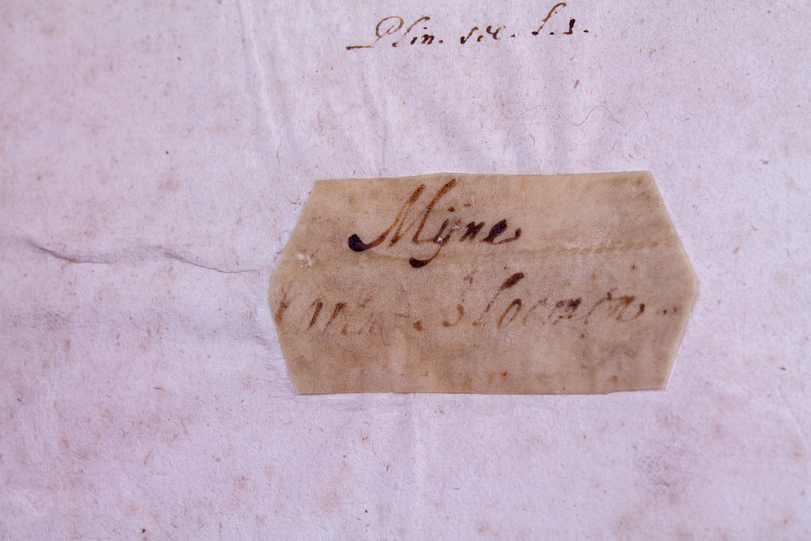 Plin. sec. l. 1.
Mijne
Bloemen